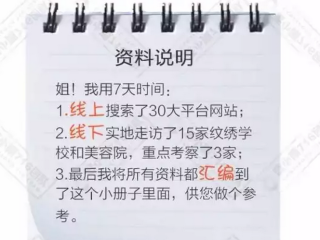 资料说明
姐！我用7天时间：
1.线上搜索了30大平台网站；
2.线下实地走访了15家纹绣学
校和美容院，重点考察了3家；
3.最后我将所有资料都汇编到
了这个小册子里面，供您做个参
考。